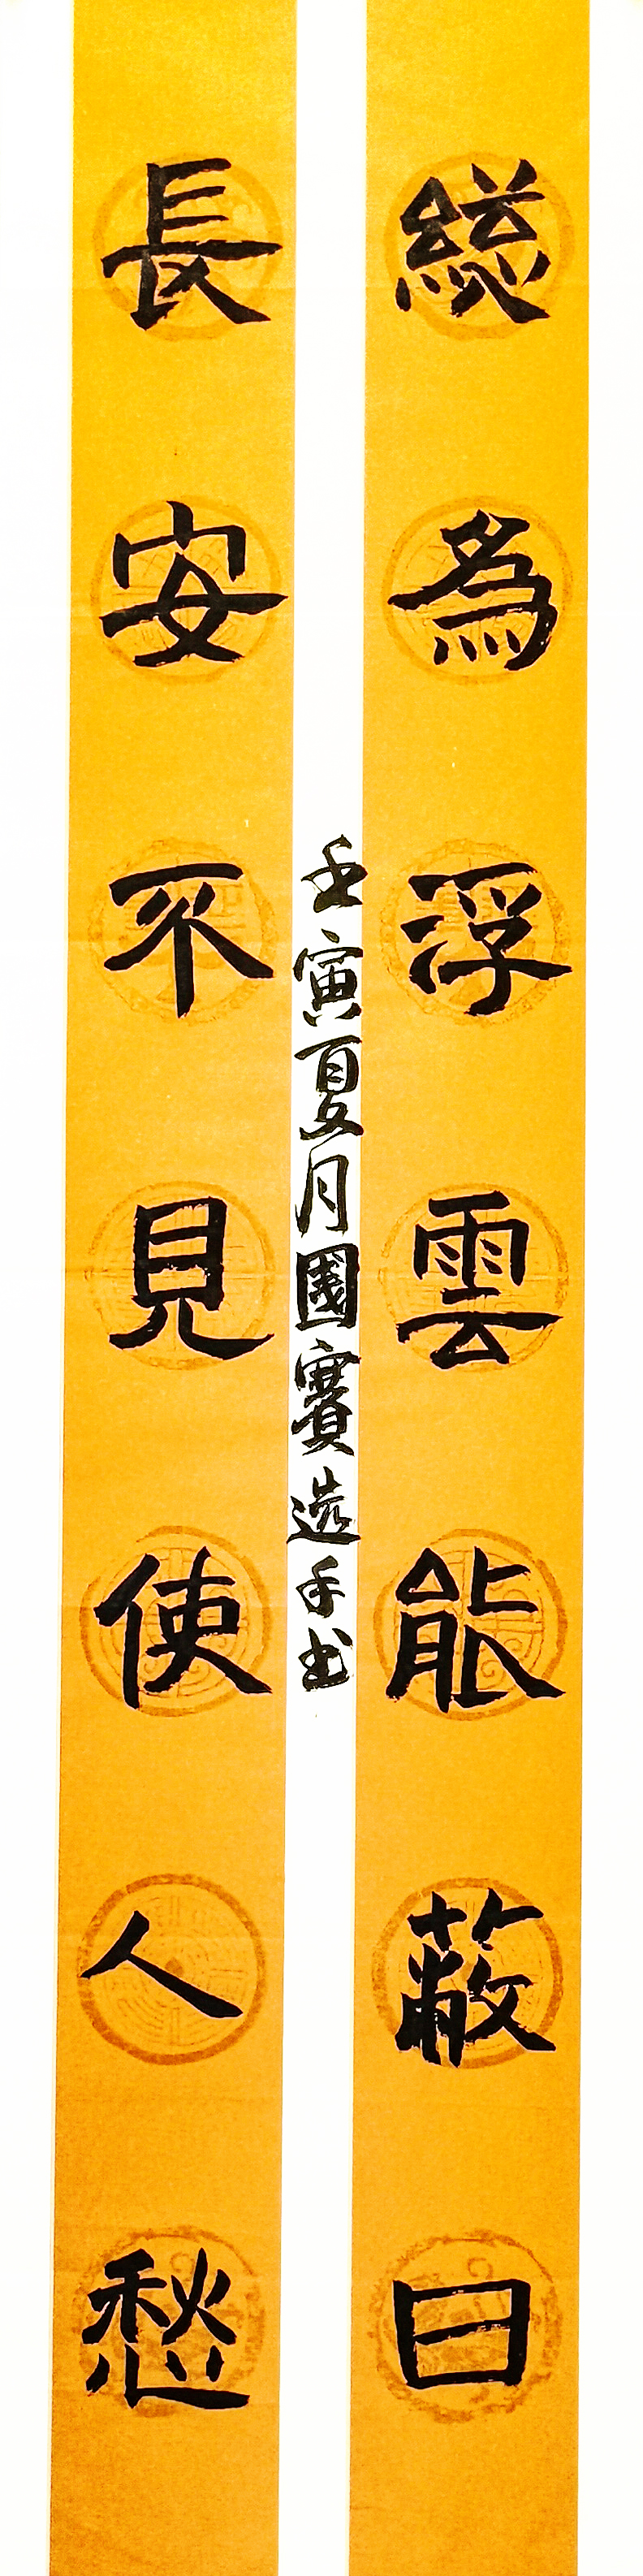 総為浮雲能蔽日
長安不見使人愁
壬寅夏月國賽选手书